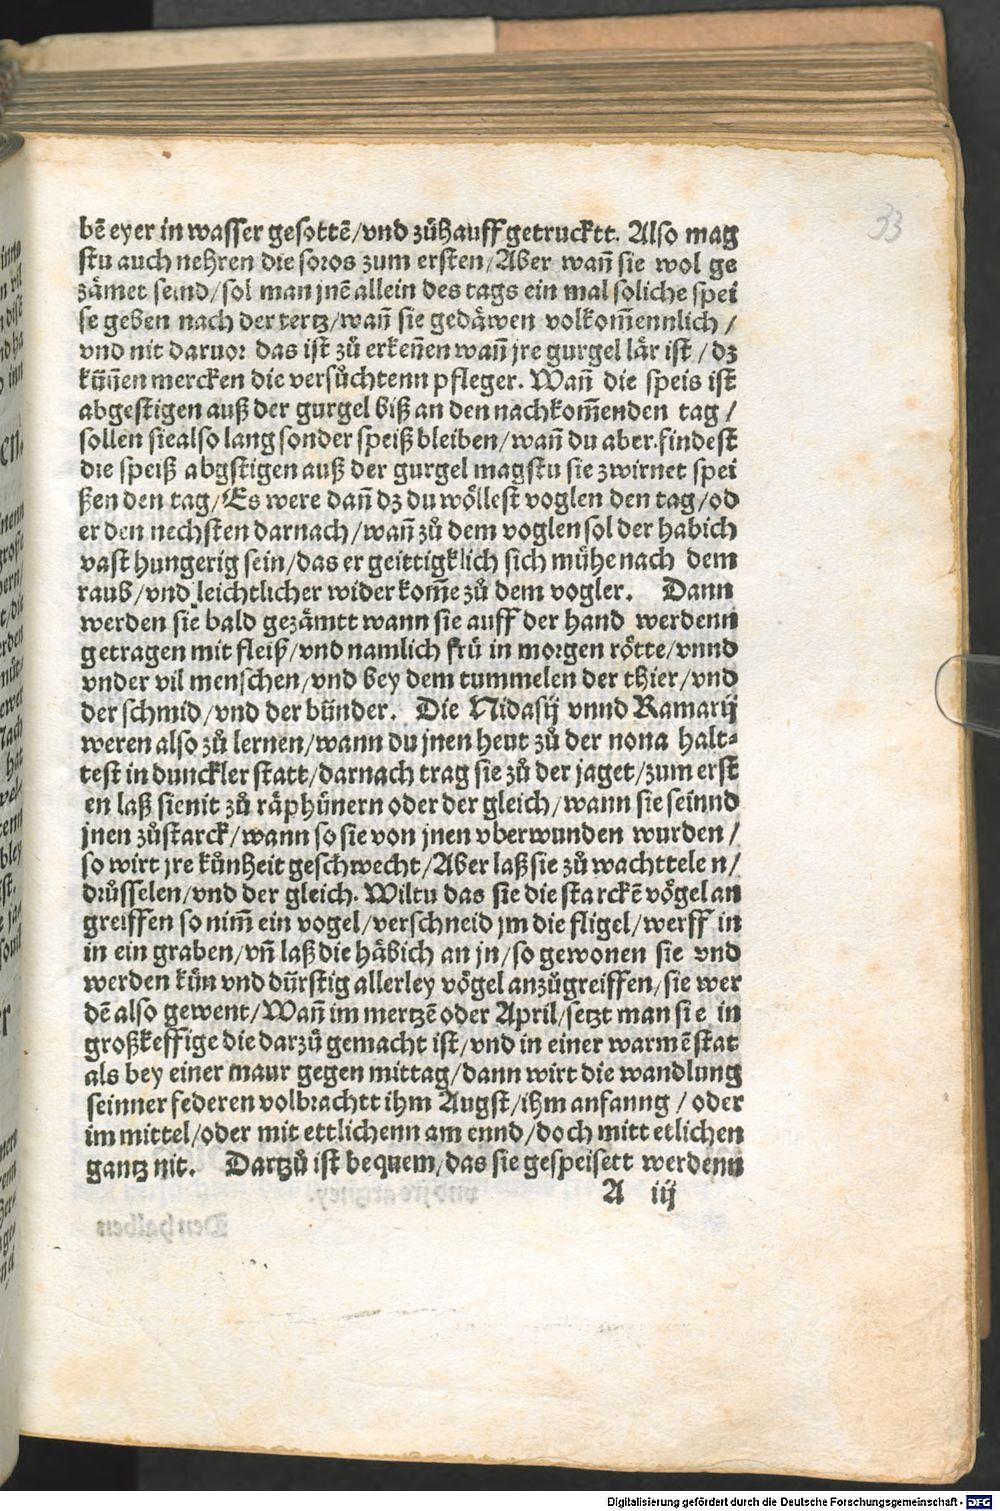 33
bẽ eyer in wasser gesottẽ/vnd zůhauff getrucktt. Also mag
stu auch nehren die soros zum ersten/Aber wañ sie wol ge
zämet seind/sol man jnẽ allein des tags ein mal soliche spei
se geben nach der tertz/wañ sie gedäwen volkom̃ennlich /
vnd nit daruor das ist zů erkeñen wañ jre gurgel lär ist / dz
küñen mercken die versůchtenn pfleger. Wañ die speis ist
abgestigen auß der gurgel biß an den nachkom̃enden tag /
sollen siealso lang sonder speiß bleiben/wañ du aber.findest
die speiß abgstigen auß der gurgel magstu sie zwirnet spei
ßen den tag/Es were dañ dz du wöllest voglen den tag/od
er den nechsten darnach/wañ zů dem voglen sol der habich
vast hungerig sein/das er geittigklich sich mühe nach dem
raub/vnd leichtlicher wider kom̃e zů dem vogler. Dann
werden sie bald gezämtt wann sie auff der hand werdenn
getragen mit fleiß/vnd namlich frü in morgen rötte/vnnd
vnder vil menschen/vnd bey dem tummelen der thier/vnd
der schmid/vnd der bünder. Die Nidasij vnnd Ramarij
weren also zů lernen/wann du jnen heut zů der nona halt⸗
test in dunckler statt/darnach trag sie zů der jaget/zum erst
en laß sienit zů räphünern oder der gleich/wann sie seinnd
jnen zůstarck/wann so sie von jnen vberwunden wurden /
so wirt jre kůnheit geschwecht/Aber laß sie zů wachttele n/
drůsselen/vnd der gleich. Wiltu das sie die starckẽ vögel an
greiffen so nim̃ ein vogel/verschneid jm die fligel/werff in
in ein graben/vñ laß die häbich an jn/so gewonen sie vnd
werden kün vnd dürstig allerley vögel anzůgreiffen/sie wer
dẽ also gewent/Wañ im mertzẽ oder April/setzt man sie in
großkeffige die darzů gemacht ist/vnd in einer warmẽ stat
als bey einer maur gegen mittag/dann wirt die wandlung
seinner federen volbrachtt ihm Augst/ihm anfanng / oder
im mittel/oder mit ettlichenn am ennd/doch mitt etlichen
gantz nit. Dartzů ist bequem/das sie gespeisett werdenn
A iij
Digitalisierung gefördert durch die Deutsche Forschungsgemeinschaft - DFG